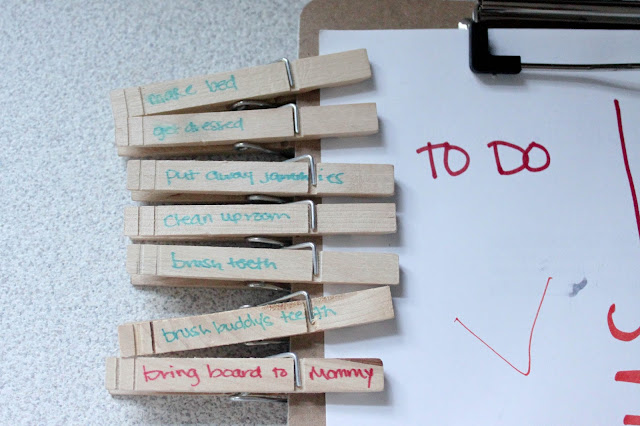 make bed
get dressed
put away jammies
clean up room
brush teeth
brush buddy's teeth
bring board to Mommy
TO DO